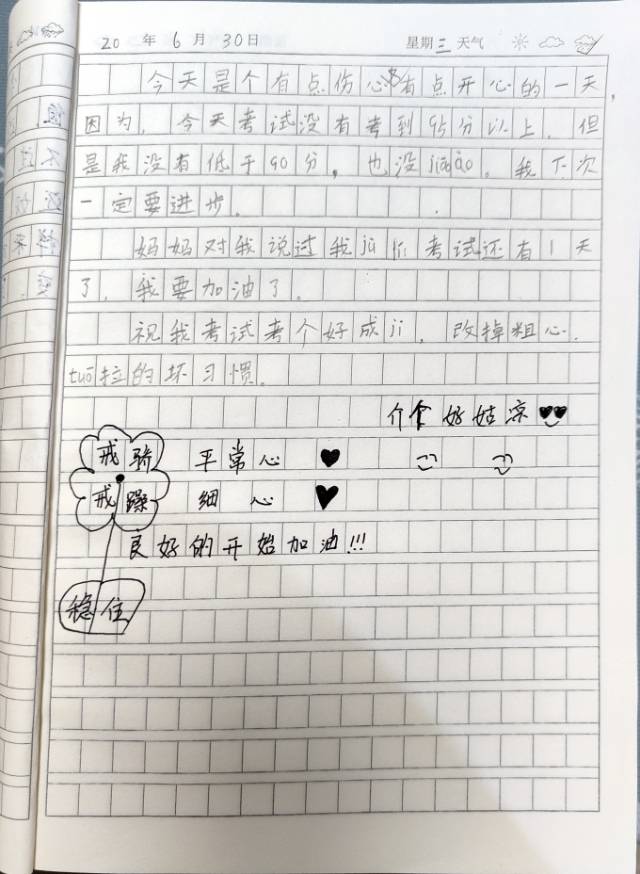 20 年 6 月 30日 星期三 天气
今天是个有点伤心有点开心的一天,
因为,今天考试没有考到95分以上.但
是我没有低于90分,也没jiāoào。我下次
一定要进步.
妈妈对我说过我jù lí考试还有1天
了.我要加油了.
祝我考试考个好成jì.改掉粗心.
tuō拉的坏习惯.
个好姑凉
戒骄 平常心
戒躁 细心
良好的开始加油!!!
稳住